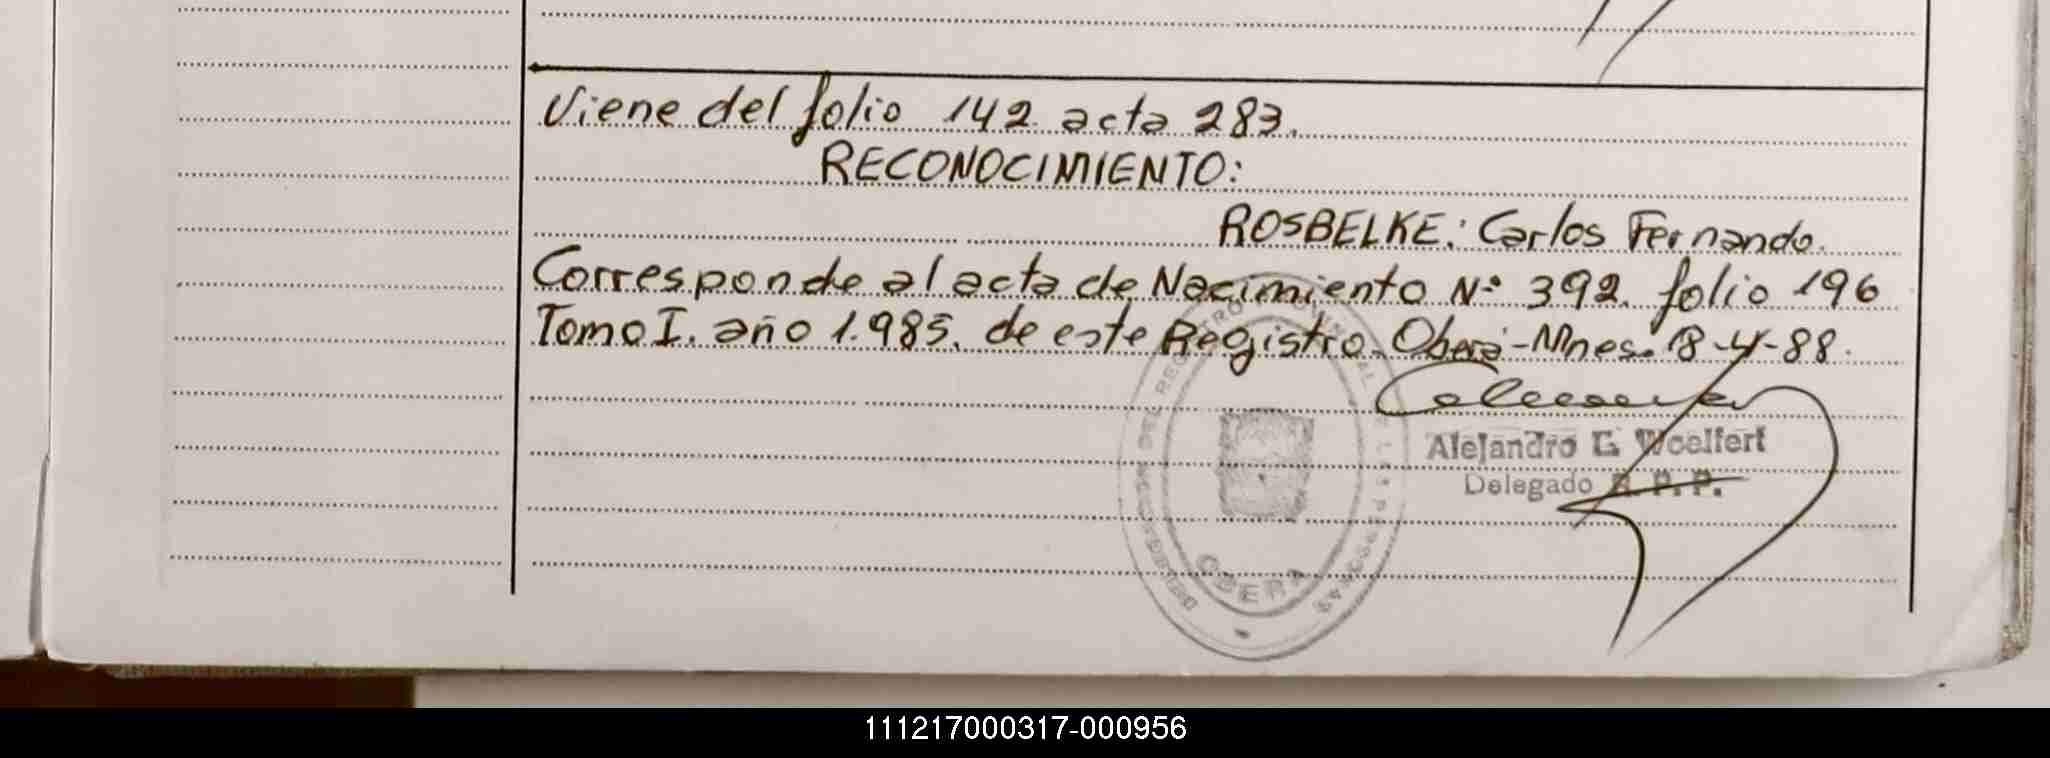 Viene del folio 142 acta 283.
RECONOCIMIENTO:
ROSBELKE: Carlos Fernando.
Corresponde al acta de Nacimiento Nº 392. folio 196
Tomo I. año 1.985. de este Registro. Oberá-Mnes. 18-4-88.
Alejandro G. Woelfert
Delegado R. P. P.
DEL REGISTRO PROVINCIAL DE LAS PERSONAS
OBERA
111217000317-000956